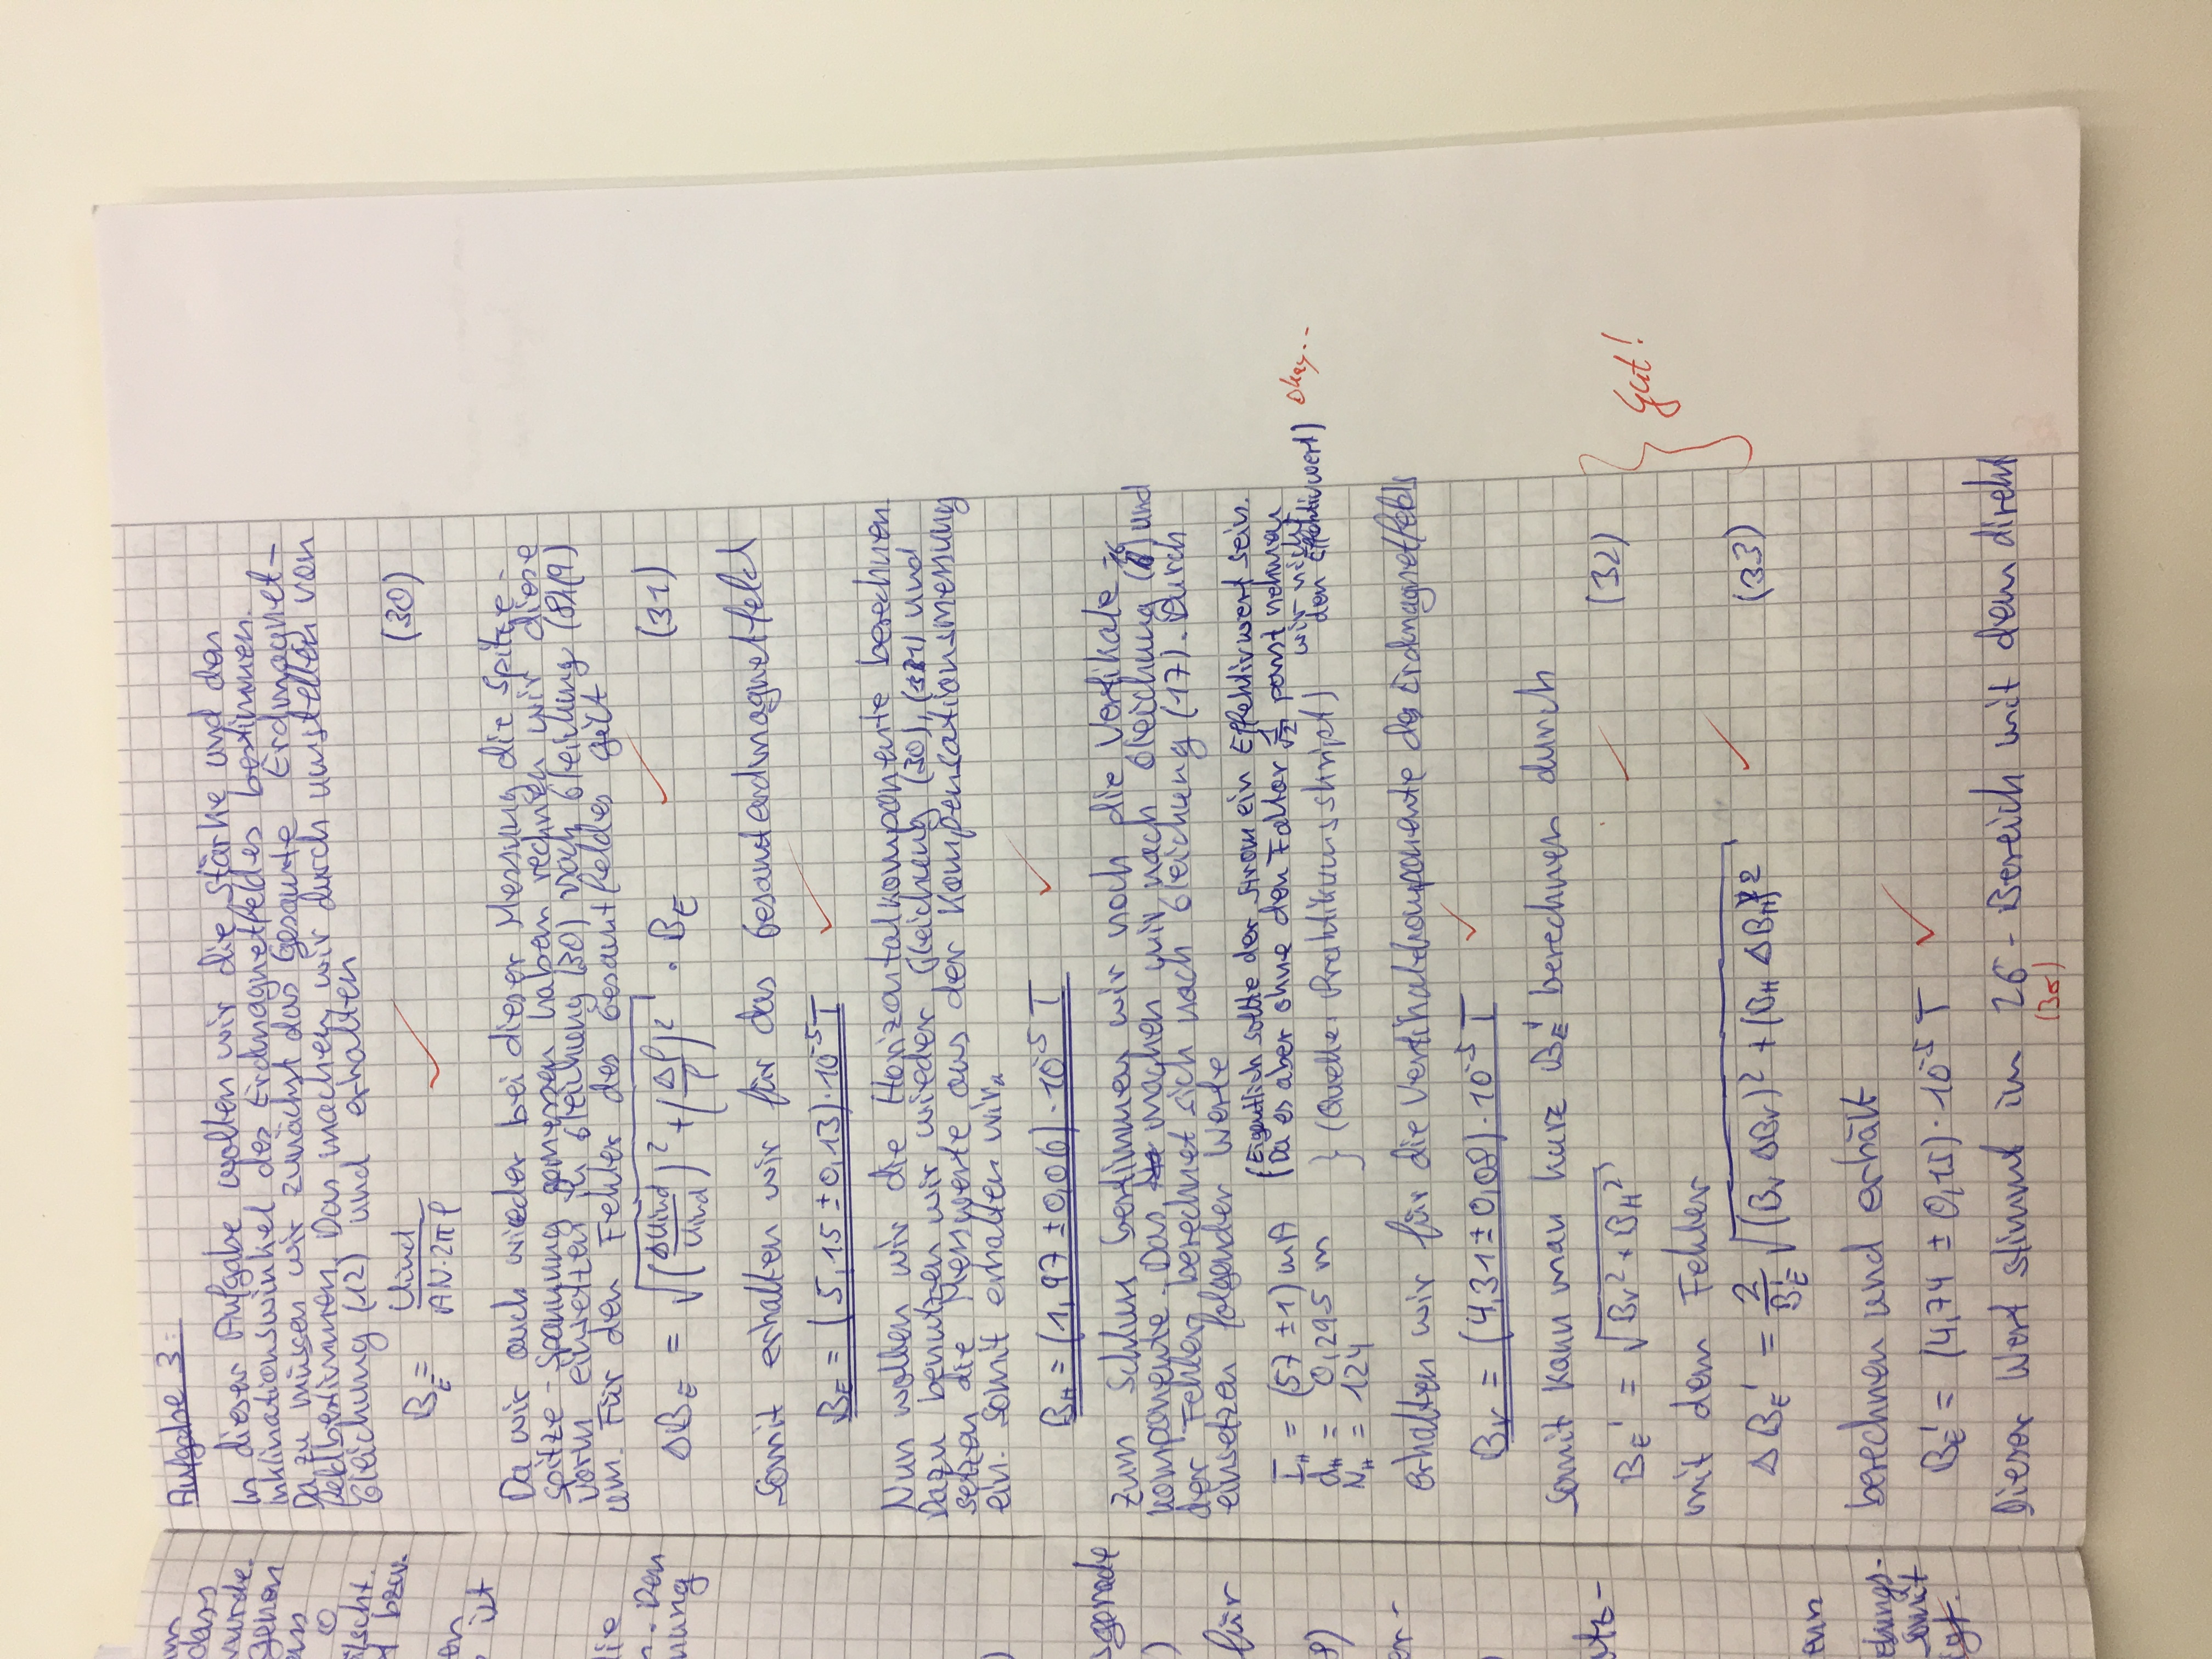 Aufgabe 3:
In dieser Aufgabe wollen wir die Stärke und den
Inklinationswinkel des Erdmagnetfeldes bestimmen.
Dazu müssen wir zunächst das Gesamte Erdmagnet-
feld bestimmen. Das machen wir durch umstellen von
Gleichung (12) und erhalten
B_E = Uind / (AN·2πf) (30)
Da wir auch wieder bei dieser Messung die Spitze-
spitze-Spannung gemessen haben rechnen wir diese
vorm einsetzen in Gleichung (30) nach Gleichung (8)/(9)
um. Für den Fehler des Gesamtfeldes gilt
ΔB_E = √((ΔUind/Uind)² + (Δf/f)²) · B_E (31)
Somit erhalten wir für das Gesamterdmagnetfeld
B_E = (5,15 ± 0,13)·10⁻⁵ T
Nun wollen wir die Horizontalkomponente berechnen
Dazu benutzen wir wieder Gleichung (30), (31) und
setzen die Messwerte aus der Kompensationsmessung
ein. Somit erhalten wir
B_H = (1,97 ± 0,06)·10⁻⁵ T
Zum Schluss bestimmen wir noch die Vertikale-
komponente. Das machen wir nach Gleichung (16) und
der Fehler berechnet sich nach Gleichung (17). Durch
einsetzen folgender Werte
I_H = (57 ± 1) mA (Eigentlich sollte der Strom ein Effektivwert sein.
(Da es aber ohne den Faktor 1/√2 passt nehmen
wir nicht
den Effektivwert) Okay..
d_H = 0,295 m
N_H = 124 } (Quelle: Praktikumsskript)
erhalten wir für die Vertikalkomponente des Erdmagnetfelds
B_V = (4,31 ± 0,08)·10⁻⁵ T
somit kann man kurz B_E' berechnen durch
B_E' = √(B_V² + B_H²) (32)
Gut!
mit dem Fehler
ΔB_E' = 2/B_E' √((B_V ΔB_V)² + (B_H ΔB_H)²) (33)
berechnen und erhält
B_E' = (4,74 ± 0,15)·10⁻⁵ T
Dieser Wert stimmt im 2σ-Bereich mit dem direkt
(3σ)
dass
wurde.
ist
Den
für
somit